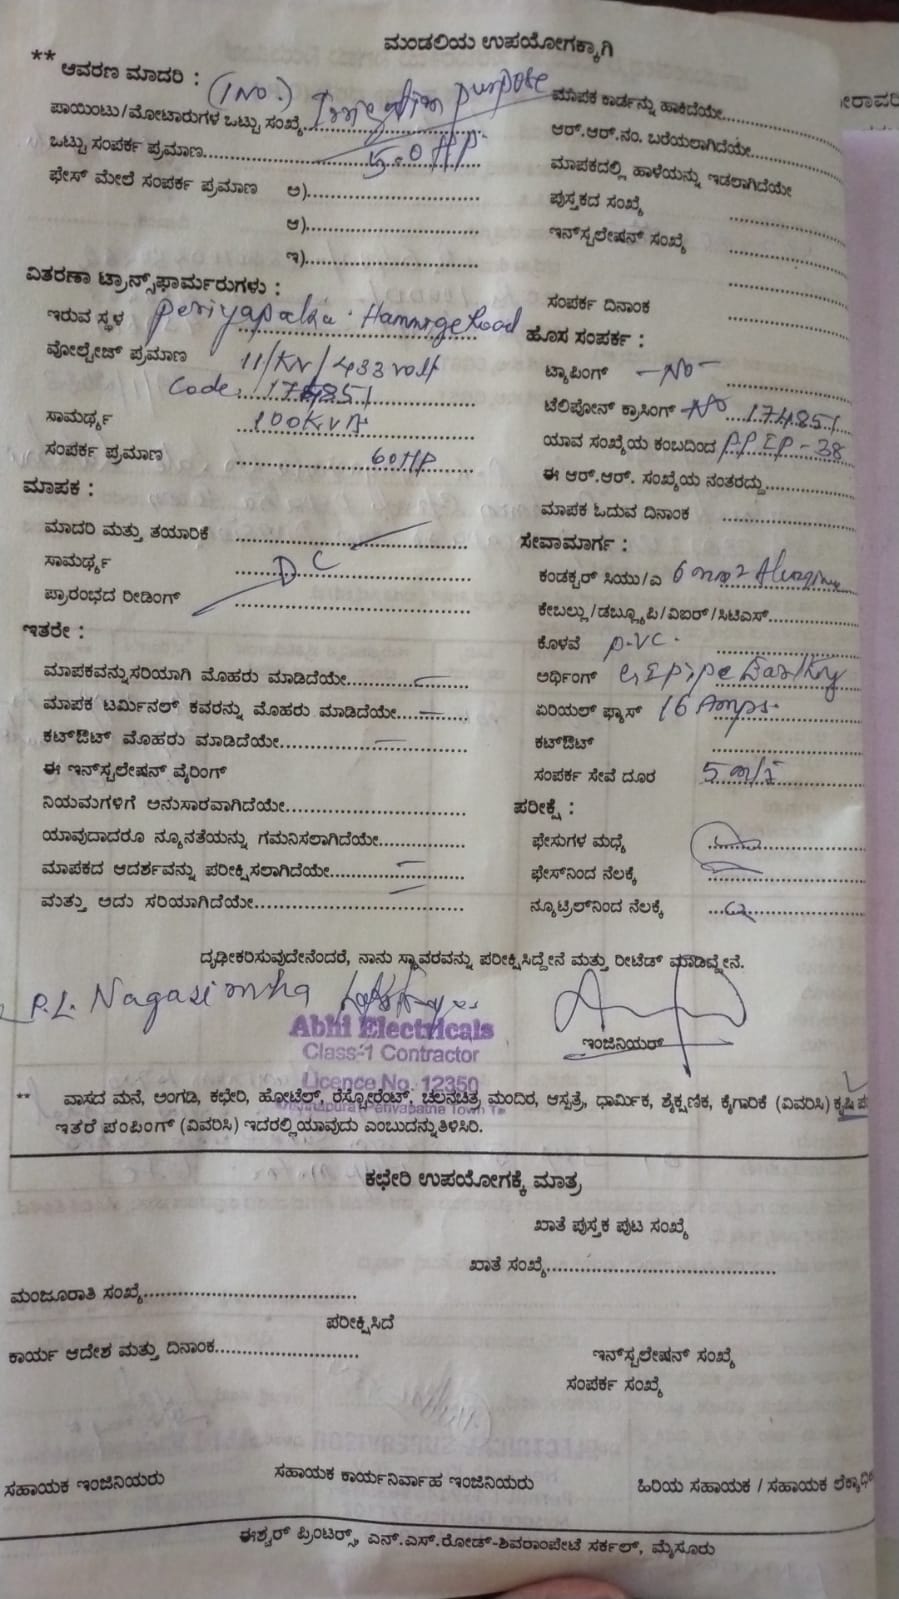 ಮಂಡಲಿಯ ಉಪಯೋಗಕ್ಕಾಗಿ
** ಆವರಣ ಮಾದರಿ :
(1NO.) Irrigation purpose
ಪಾಯಿಂಟು/ಮೋಟಾರುಗಳ ಒಟ್ಟು ಸಂಖ್ಯೆ
ಒಟ್ಟು ಸಂಪರ್ಕ ಪ್ರಮಾಣ 5.0 HP
ಫೇಸ್ ಮೇಲೆ ಸಂಪರ್ಕ ಪ್ರಮಾಣ ಅ)
ಆ)
ಇ)
ವಿತರಣಾ ಟ್ರಾನ್ಸ್‌ಫಾರ್ಮರುಗಳು :
ಇರುವ ಸ್ಥಳ Road
ವೋಲ್ಟೇಜ್ ಪ್ರಮಾಣ 11/KV/433 volt
Code: 174851
ಸಾಮರ್ಥ್ಯ 100KVA
ಸಂಪರ್ಕ ಪ್ರಮಾಣ 60HP
ಮಾಪಕ :
ಮಾದರಿ ಮತ್ತು ತಯಾರಿಕೆ
ಸಾಮರ್ಥ್ಯ DC
ಪ್ರಾರಂಭದ ರೀಡಿಂಗ್
ಇತರೇ :
ಮಾಪಕವನ್ನು ಸರಿಯಾಗಿ ಮೊಹರು ಮಾಡಿದೆಯೇ
ಮಾಪಕ ಟರ್ಮಿನಲ್ ಕವರನ್ನು ಮೊಹರು ಮಾಡಿದೆಯೇ
ಕಟ್‌ಔಟ್ ಮೊಹರು ಮಾಡಿದೆಯೇ
ಈ ಇನ್‌ಸ್ಟಲೇಷನ್ ವೈರಿಂಗ್
ನಿಯಮಗಳಿಗೆ ಅನುಸಾರವಾಗಿದೆಯೇ
ಯಾವುದಾದರೂ ನ್ಯೂನತೆಯನ್ನು ಗಮನಿಸಲಾಗಿದೆಯೇ
ಮಾಪಕದ ಆದರ್ಶವನ್ನು ಪರೀಕ್ಷಿಸಲಾಗಿದೆಯೇ
ಮತ್ತು ಅದು ಸರಿಯಾಗಿದೆಯೇ
ಮಾಪಕ ಕಾರ್ಡನ್ನು ಹಾಕಿದೆಯೇ
ಆರ್.ಆರ್.ನಂ. ಬರೆಯಲಾಗಿದೆಯೇ
ಮಾಪಕದಲ್ಲಿ ಹಾಳೆಯನ್ನು ಇಡಲಾಗಿದೆಯೇ
ಪುಸ್ತಕದ ಸಂಖ್ಯೆ
ಇನ್‌ಸ್ಟಲೇಷನ್ ಸಂಖ್ಯೆ
ಸಂಪರ್ಕ ದಿನಾಂಕ
ಹೊಸ ಸಂಪರ್ಕ :
ಟ್ಯಾಪಿಂಗ್ - No -
ಟೆಲಿಪೋನ್ ಕ್ರಾಸಿಂಗ್ No 174851
ಯಾವ ಸಂಖ್ಯೆಯ ಕಂಬದಿಂದ
ಈ ಆರ್.ಆರ್. ಸಂಖ್ಯೆಯ ನಂತರದ್ದು
ಮಾಪಕ ಓದುವ ದಿನಾಂಕ
ಸೇವಾಮಾರ್ಗ :
ಕಂಡಕ್ಟರ್ ಸಿಯು/ಎ 6 mm2
ಕೇಬಲ್ಲು/ಡಬ್ಲ್ಯೂಪಿ/ವಿಐರ್/ಸಿಟಿಎಸ್
ಕೊಳವೆ P.VC.
ಅರ್ಥಿಂಗ್
ಏರಿಯಲ್ ಫ್ಯಾಸ್ 16 Amps
ಕಟ್‌ಔಟ್
ಸಂಪರ್ಕ ಸೇವೆ ದೂರ
ಪರೀಕ್ಷೆ :
ಫೇಸುಗಳ ಮಧ್ಯೆ
ಫೇಸ್‌ನಿಂದ ನೆಲಕ್ಕೆ
ನ್ಯೂಟ್ರಿಲ್‌ನಿಂದ ನೆಲಕ್ಕೆ
ದೃಢೀಕರಿಸುವುದೇನೆಂದರೆ, ನಾನು ಸ್ಥಾವರವನ್ನು ಪರೀಕ್ಷಿಸಿದ್ದೇನೆ ಮತ್ತು ರೀಟೆಡ್ ಮಾಡಿದ್ದೇನೆ.
P.L. Nagasimha
Abhi Electricals
Class-1 Contractor
Licence No. 12350
ಇಂಜಿನಿಯರ್
** ವಾಸದ ಮನೆ, ಅಂಗಡಿ, ಕಛೇರಿ, ಹೋಟೆಲ್, ರೆಸ್ಟೋರೆಂಟ್, ಚಲನಚಿತ್ರ ಮಂದಿರ, ಆಸ್ಪತ್ರೆ, ಧಾರ್ಮಿಕ, ಶೈಕ್ಷಣಿಕ, ಕೈಗಾರಿಕೆ (ವಿವರಿಸಿ) ಕೃಷಿ
ಇತರೆ ಪಂಪಿಂಗ್ (ವಿವರಿಸಿ) ಇದರಲ್ಲಿ ಯಾವುದು ಎಂಬುದನ್ನು ತಿಳಿಸಿರಿ.
ಕಛೇರಿ ಉಪಯೋಗಕ್ಕೆ ಮಾತ್ರ
ಖಾತೆ ಪುಸ್ತಕ ಪುಟ ಸಂಖ್ಯೆ
ಖಾತೆ ಸಂಖ್ಯೆ
ಮಂಜೂರಾತಿ ಸಂಖ್ಯೆ
ಪರೀಕ್ಷಿಸಿದೆ
ಕಾರ್ಯ ಆದೇಶ ಮತ್ತು ದಿನಾಂಕ
ಇನ್‌ಸ್ಟಲೇಷನ್ ಸಂಖ್ಯೆ
ಸಂಪರ್ಕ ಸಂಖ್ಯೆ
ಸಹಾಯಕ ಇಂಜಿನಿಯರು ಸಹಾಯಕ ಕಾರ್ಯನಿರ್ವಾಹ ಇಂಜಿನಿಯರು ಹಿರಿಯ ಸಹಾಯಕ / ಸಹಾಯಕ
ಈಶ್ವರ್ ಪ್ರಿಂಟರ್ಸ್, ಎನ್.ಎಸ್.ರೋಡ್-ಶಿವರಾಂಪೇಟೆ ಸರ್ಕಲ್, ಮೈಸೂರು